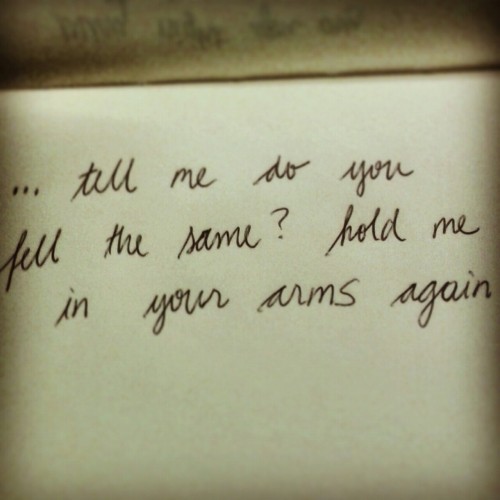 ... tell me do you
fell the same? hold me
in your arms again